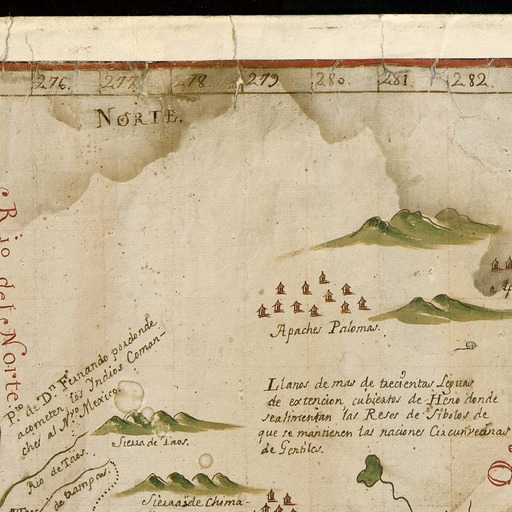 276. 277 278 279 280. 281. 282.
NORTE.
Rio del Norte
Apaches Palomas.
Pto de Dn Fernando pordonde
acometen los Yndios Coman-
ches al Nvo Mexico
Llanos de mas de trecientas Leguas
de extencion cubiertos de Heno donde
sealimentan las Reses de Sibolos de
que se mantienen las naciones Circunvecinas
de Gentiles.
Sierra de Taos.
Rio de Taos.
de trampas.
Sierra de Chima-